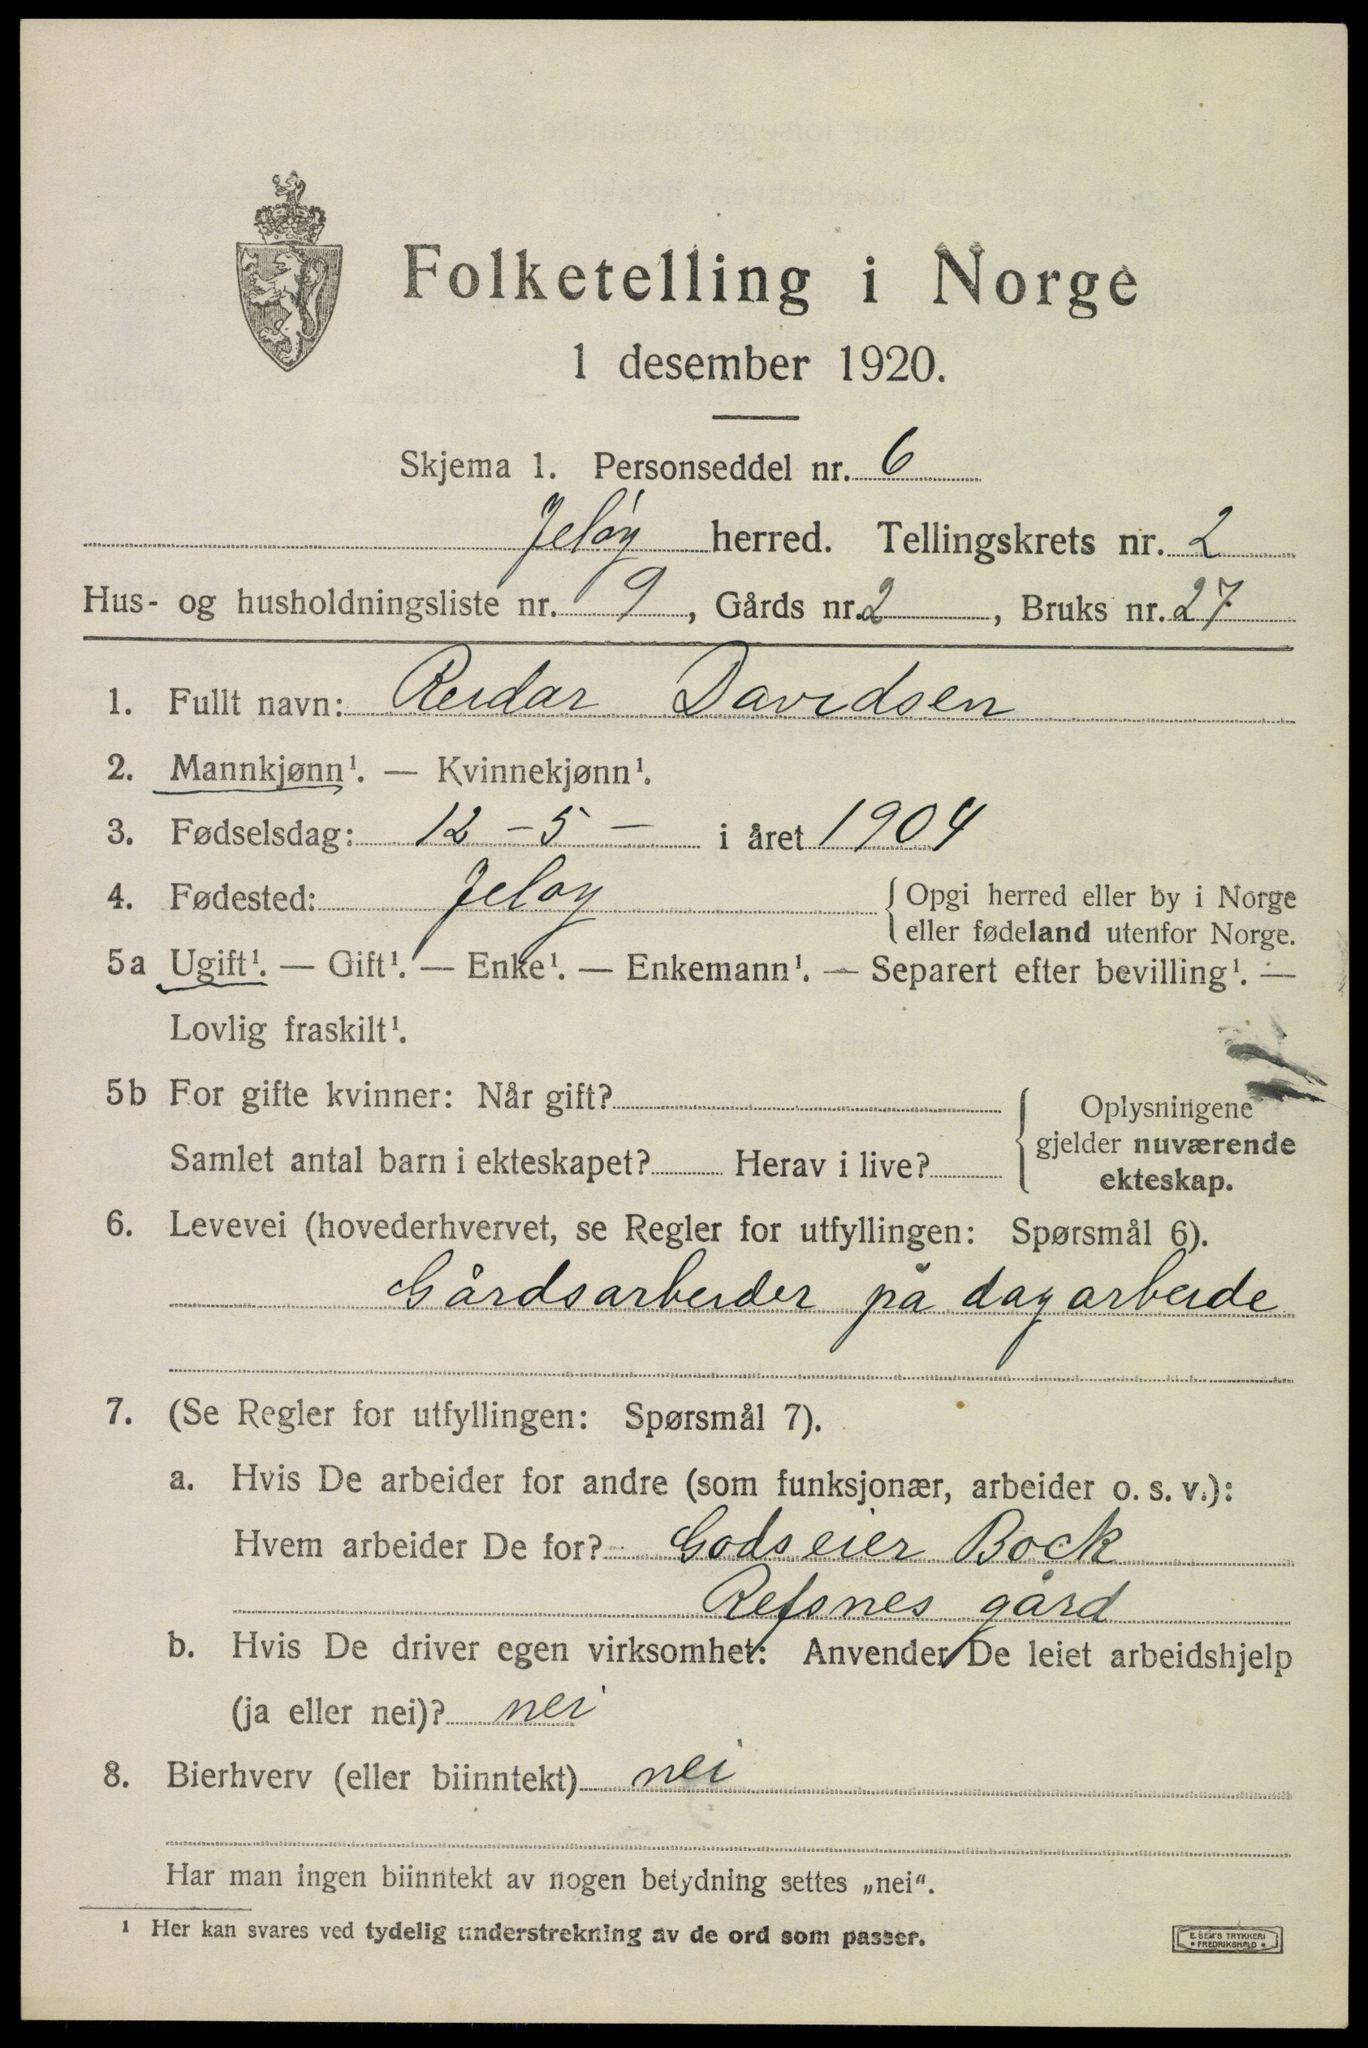 Folketelling i Norge
1 desember 1920.
Skjema 1. Personseddel nr. 6
Jeløy herred. Tellingskrets nr. 2
Hus- og husholdningsliste nr. 9, Gårds nr. 2, Bruks nr. 27
1. Fullt navn: Reidar Davidsen
2. Mannkjønn¹. — Kvinnekjønn¹.
3. Fødselsdag: 12 – 5 – i året 1904
4. Fødested: Jeløy { Opgi herred eller by i Norge
eller fødeland utenfor Norge.
5a Ugift¹. — Gift¹. — Enke¹. — Enkemann¹. — Separert efter bevilling¹. —
Lovlig fraskilt¹.
5b For gifte kvinner: Når gift? { Oplysningene
gjelder nuværende
Samlet antal barn i ekteskapet? Herav i live?
ekteskap.
6. Levevei (hovederhvervet, se Regler for utfyllingen: Spørsmål 6).
Gårdsarbeider på dagarbeide
7. (Se Regler for utfyllingen: Spørsmål 7).
a. Hvis De arbeider for andre (som funksjonær, arbeider o. s. v.):
Hvem arbeider De for? Godseier Bock
Refsnes gård
b. Hvis De driver egen virksomhet: Anvender De leiet arbeidshjelp
(ja eller nei)? nei
8. Bierhverv (eller biinntekt) nei
Har man ingen biinntekt av nogen betydning settes „nei“.
¹ Her kan svares ved tydelig understrekning av de ord som passer.
E. SEM'S TRYKKERI
• FREDRIKSHALD •